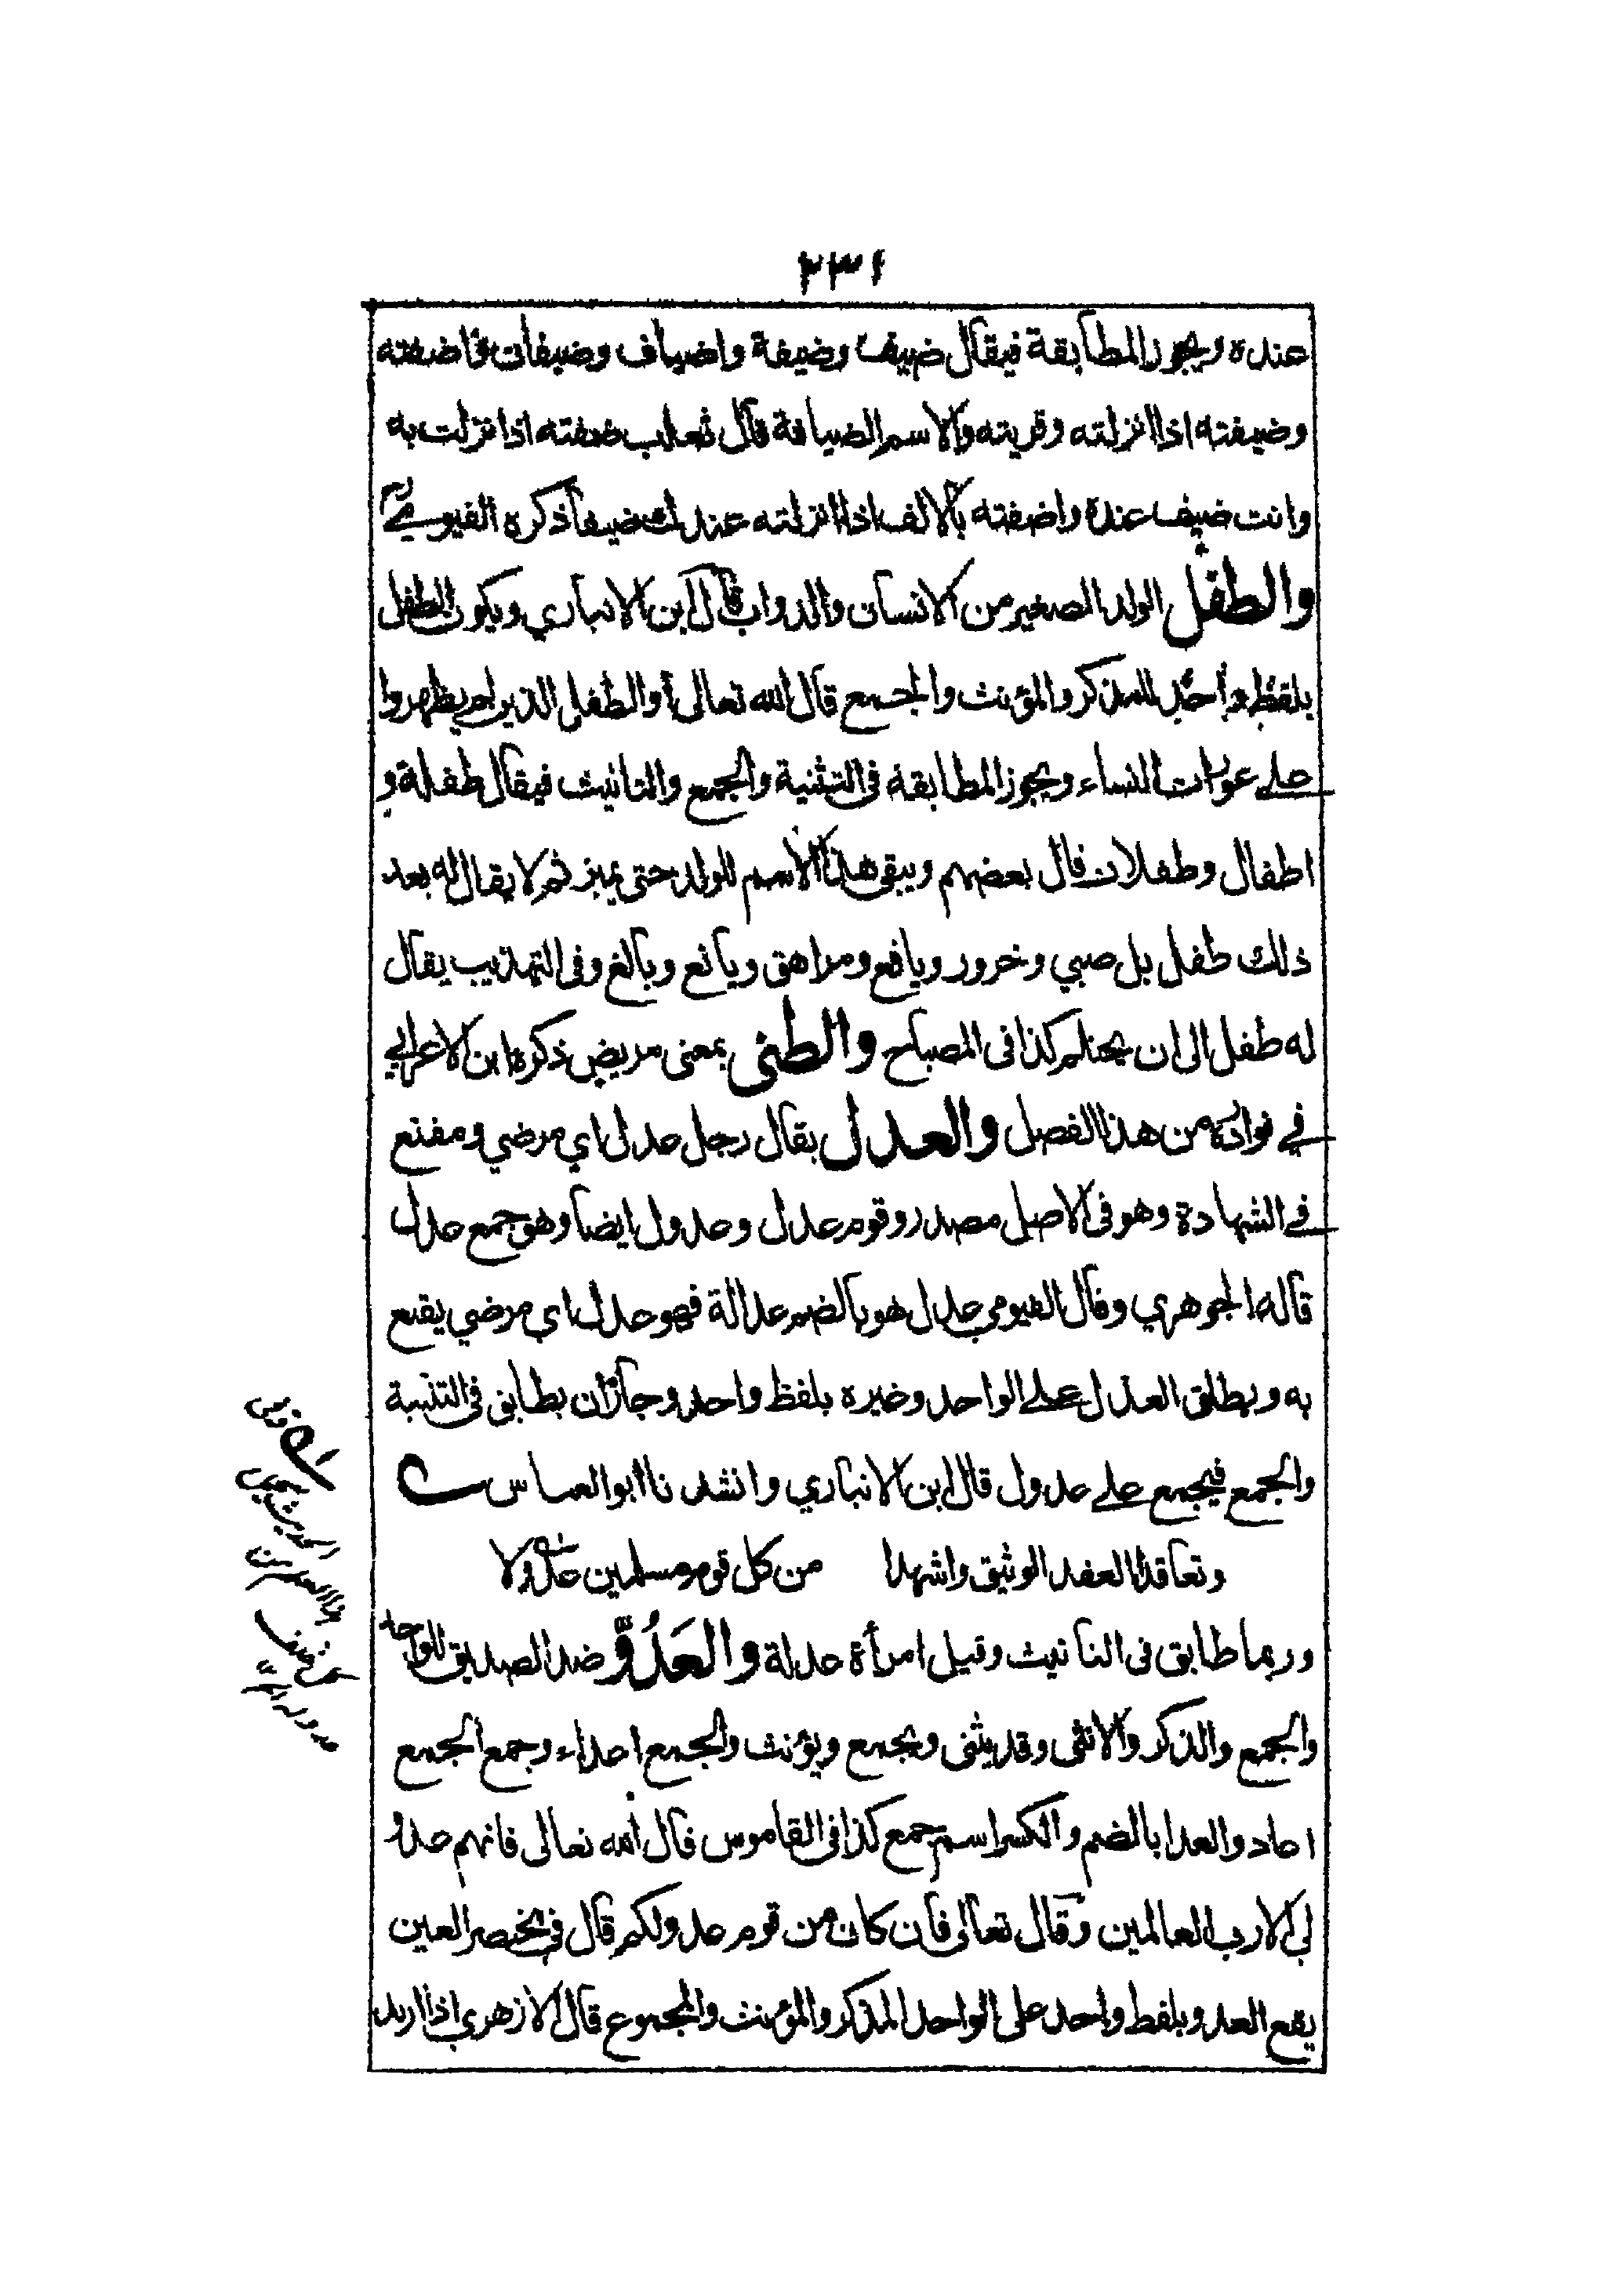 ٢٣١
عنده ويجوز المطابقة فيقال ضيف وضيفة واضياف وضيفات واضفته
وضيفته اذا انزلته وقريته والاسم الضيافة قال ثعلب ضفته اذا نزلت به
وانت ضيف عنده واضفته بالالف اذا انزلته عندك ضيفا ذكره الفيومي
والطفل الولد الصغير من الانسان والدواب قال ابن الانباري ويكون الطفل
بلفظ واحد للمذكر والمؤنث والجمع قال الله تعالى أو الطفل الذين لم يظهروا
على عورات النساء ويجوز المطابقة فى التثنية والجمع والتانيث فيقال طفلة و
اطفال وطفلات قال بعضهم ويبقى هذا الاسم للولد حتى يميز ثم لا يقال له بعد
ذلك طفل بل صبي وحزور ويافع ومراهق ويانع وبالغ وفى التهذيب يقال
له طفل الى ان يحتلم كذا فى المصباح والطنى بمعنى مريض ذكره ابن الاعرابي
في نوادره من هذا الفصل والعدل يقال رجل عدل اي مرضي ومقنع
في الشهادة وهو فى الاصل مصدر وقوم عدل وعدول ايضا وهو جمع عدل
قاله الجوهري وقال الفيومي عدل هو بالضم عدالة فهو عدل اي مرضي يقنع
به ويطلق العدل على الواحد وغيره بلفظ واحد وجاز ان يطابق فى التثنية
والجمع فيجمع على عدول قال ابن الانباري وانشدنا ابو العباس
وتعاقدا العقد الوثيق واشهدا من كل قوم مسلمين عدولا
وربما طابق فى التانيث وقيل امرأة عدلة والعَدُوّ ضد الصديق للواحد
والجمع والذكر والانثى وقد يثنى ويجمع ويؤنث والجمع اعداء وجمع الجمع
اعاد والعدا بالضم والكسر اسم جمع كذا فى القاموس قال الله تعالى فانهم عدو
لي الا رب العالمين وقال تعالى فان كان من قوم عدو لكم قال في مختصر العين
يقع العدو بلفظ واحد على الواحد المذكر والمؤنث والمجموع قال الازهري اذا اريد